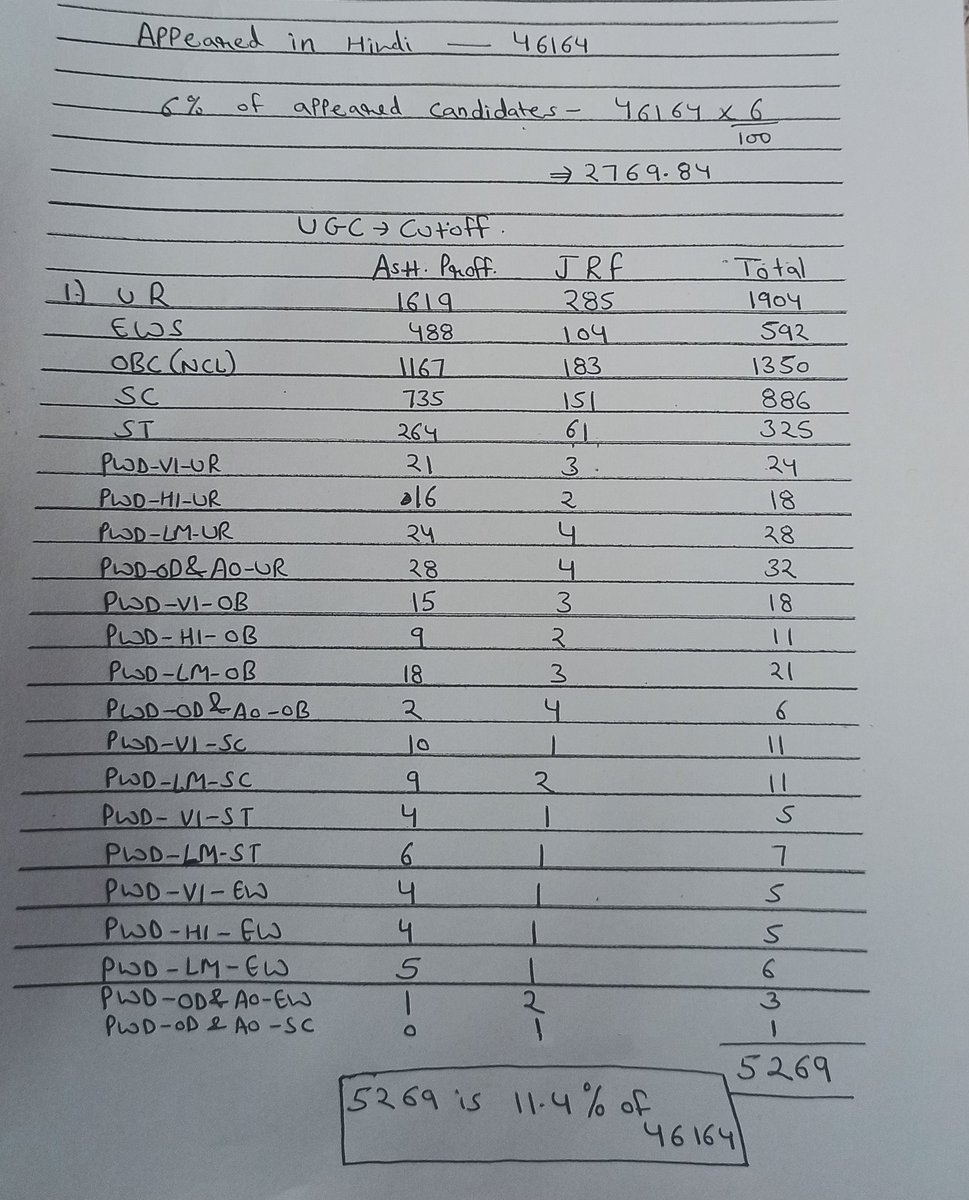 Appeared in Hindi — 46164
6% of appeared candidates - 46164 x 6
100
⇒ 2769.84
UGC → Cutoff.
Astt. Proff. JRF Total
1.) UR 1619 285 1904
EWS 488 104 592
OBC (NCL) 1167 183 1350
SC 735 151 886
ST 264 61 325
PWD-VI-UR 21 3 24
PWD-HI-UR 16 2 18
PWD-LM-UR 24 4 28
PWD-OD& AO-UR 28 4 32
PWD-VI-OB 15 3 18
PWD-HI-OB 9 2 11
PWD-LM-OB 18 3 21
PWD-OD & AO-OB 2 4 6
PWD-VI-SC 10 1 11
PWD-LM-SC 9 2 11
PWD-VI-ST 4 1 5
PWD-LM-ST 6 1 7
PWD-VI-EW 4 1 5
PWD-HI-EW 4 1 5
PWD-LM-EW 5 1 6
PWD-OD& AO-EW 1 2 3
PWD-OD & AO-SC 0 1 1
5269
5269 is 11.4% of
46164